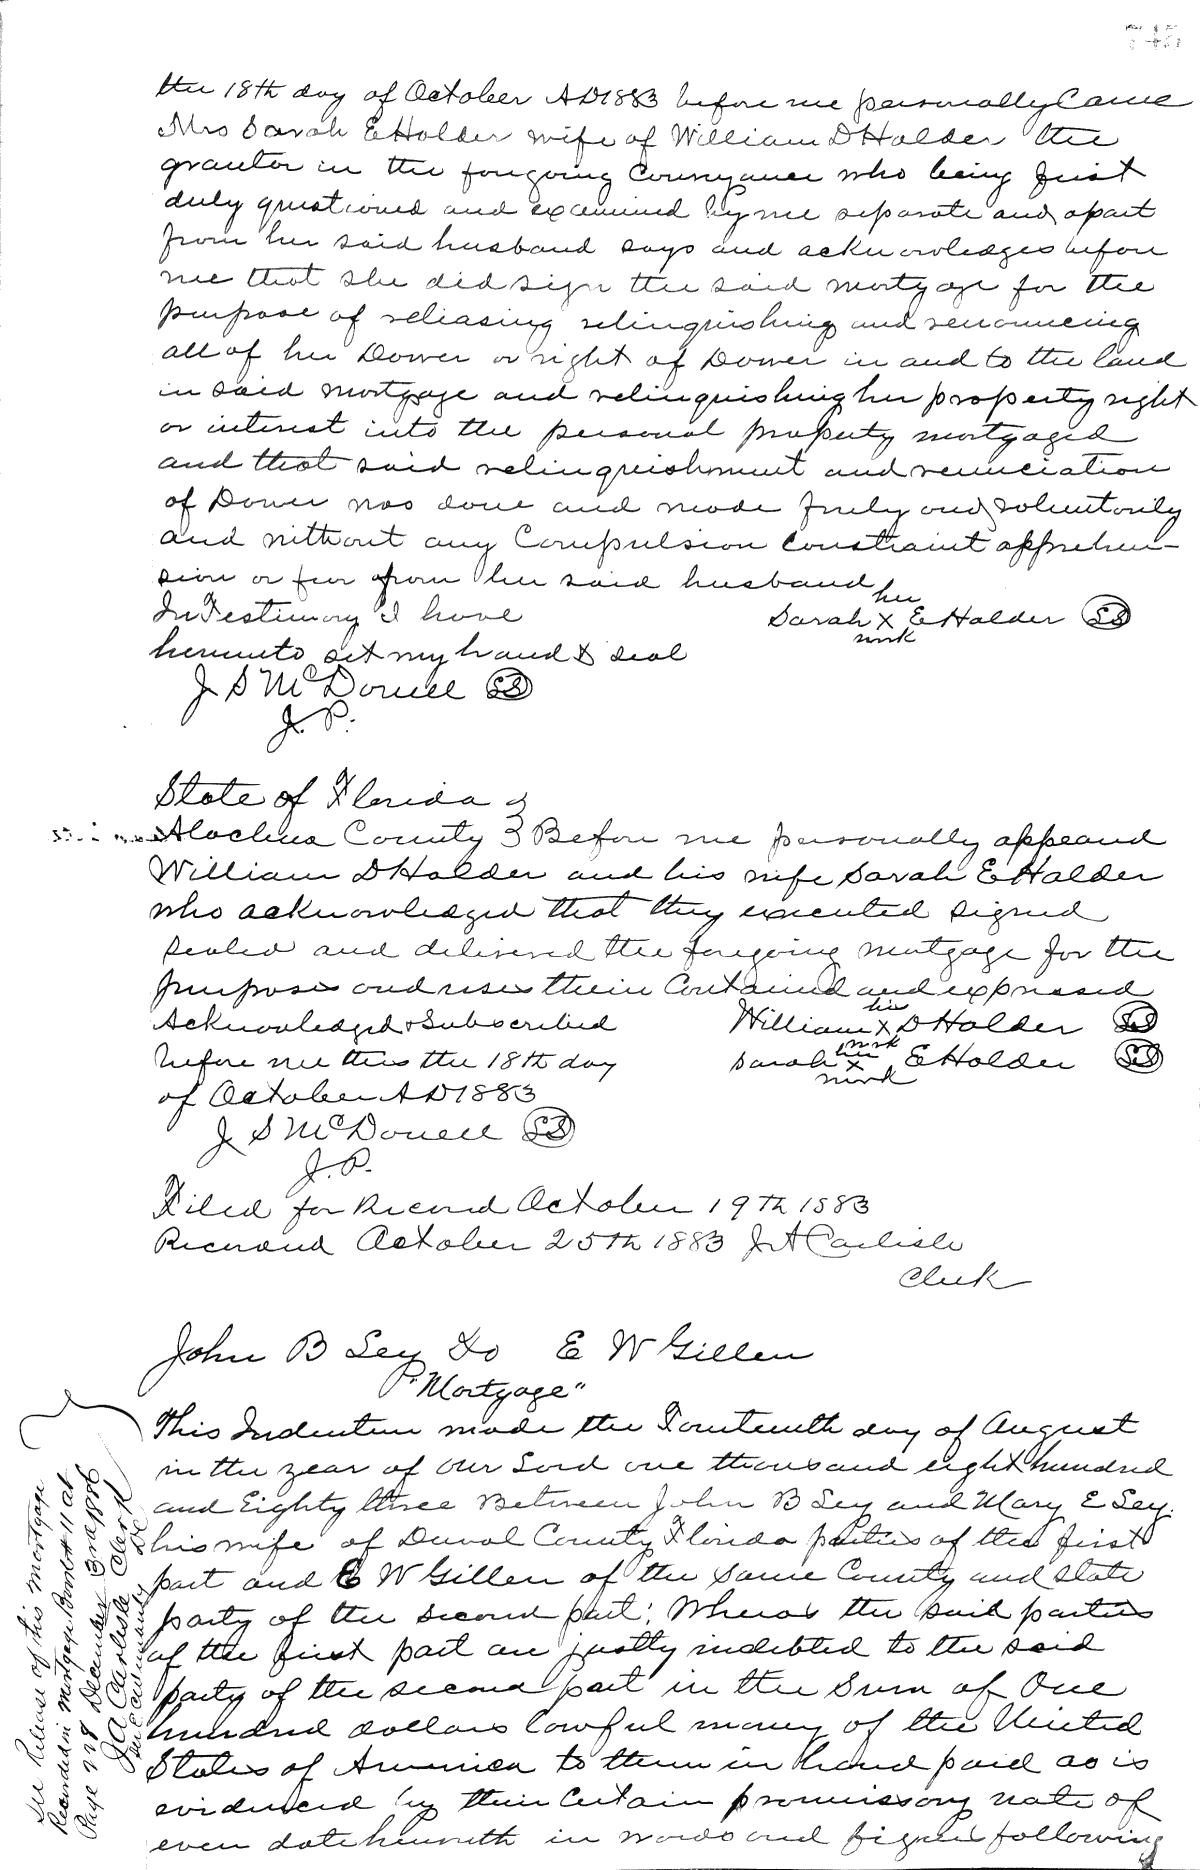 the 18th day of October AD 1883 before me personally Came
Mrs Sarah E Holder wife of William D Holder the
grantor in the foregoing Conveyance who being first
duly questioned and examined by me separate and apart
from her said husband says and acknowledges before
me that she did sign the said mortgage for the
purpose of releasing relinquishing and renouncing
all of her Dower or right of Dower in and to the land
in said mortgage and relinquishing her property right
or interest into the personal property mortgaged
and that said relinquishment and renunciation
of Dower was done and made freely and voluntarily
and without any Compulsion Constraint apprehen-
sion or fear from her said husband
her
In Testimony I have Sarah X E Holder LS
mark
hereunto set my hand & seal
J S McDonell LS
J. P.
State of Florida }
Alachua County } Before me personally appeard
William D Holder and his wife Sarah E Holder
who acknowledged that they executed signed
sealed and delivered the foregoing mortgage for the
purposes and uses therein Contained and expressed
his
Acknowledged & Subscribed William X D Holder LS
mark
her
before me this the 18th day Sarah X E Holder LS
mark
of October AD 1883
J S McDonell LS
J. P.
Filed for Record October 19th 1883
Recorded October 25th 1883 J A Carlisle
Clerk
John B Ley to E W Gillen
"Mortgage"
This Indenture made the Fourteenth day of August
in the year of our Lord one thousand eight hundred
and Eighty three Between John B Ley and Mary E Ley
his wife of Duval County Florida parties of the first
part and E W Gillen of the same County and state
party of the second part; Whereas the said parties
of the first part are justly indebted to the said
party of the second part in the Sum of One
hundred dollars lawful money of the United
States of America to them in hand paid as is
evidenced by their Certain promissory note of
even date herewith in words and figures following
See Release of this mortgage
Recorded in Mortgage Book # 11 at
Page December 3rd 1886
J A Carlisle Clerk
DC